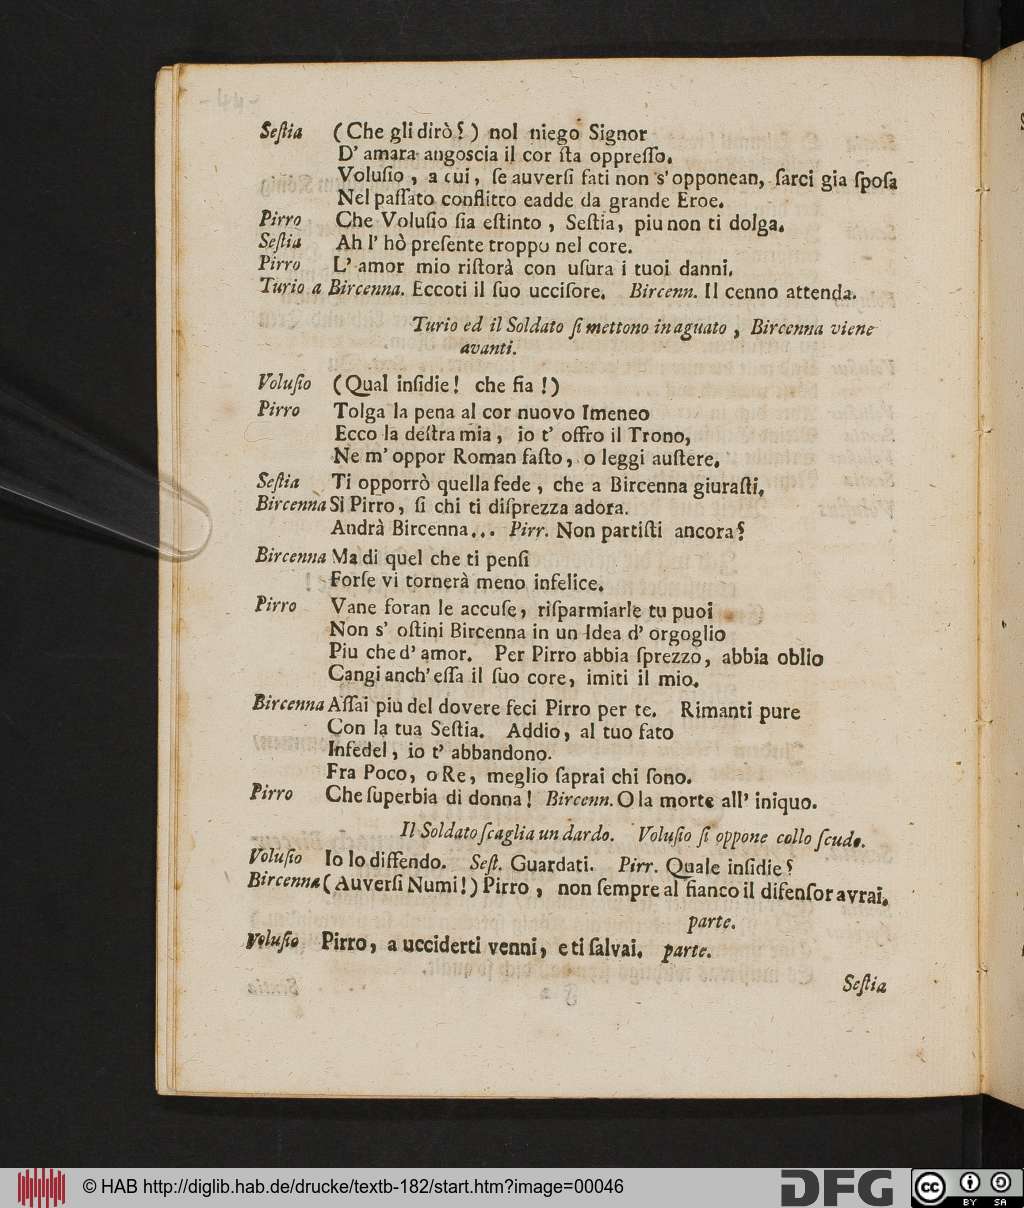 Seſtia (Che gli dirò?) nol niego Signor
D' amara angoscia il cor ſta oppreſſo.
Voluſio, a cui, ſe auverſi fati non s'opponean, ſarei gia ſpoſa
Nel paſſato conflitto eadde da grande Eroe.
Pirro Che Voluſio ſia eſtinto, Seſtia, piu non ti dolga.
Seſtia Ah l' hò preſente troppo nel core.
Pirro L' amor mio riſtorà con uſura i tuoi danni.
Turio a Bircenna. Eccoti il ſuo ucciſore. Bircenn. Il cenno attenda.
Turio ed il Soldato ſi mettono in aguato, Bircenna viene
avanti.
Voluſio (Qual inſidie! che fia!)
Pirro Tolga la pena al cor nuovo Imeneo
Ecco la deſtra mia, io t' offro il Trono,
Ne m' oppor Roman faſto, o leggi auſtere.
Seſtia Ti opporrò quella fede, che a Bircenna giuraſti.
Bircenna Si Pirro, ſi chi ti diſprezza adora.
Andrà Bircenna... Pirr. Non partiſti ancora?
Bircenna Ma di quel che ti penſi
Forſe vi tornerà meno infelice.
Pirro Vane foran le accuſe, riſparmiarle tu puoi
Non s' oſtini Bircenna in un Idea d' orgoglio
Piu che d' amor. Per Pirro abbia ſprezzo, abbia oblio
Cangi anch' eſſa il ſuo core, imiti il mio.
Bircenna Aſſai più del dovere feci Pirro per te. Rimanti pure
Con la tua Seſtia. Addio, al tuo fato
Infedel, io t' abbandono.
Fra Poco, o Re, meglio ſaprai chi ſono.
Pirro Che ſuperbia di donna! Bircenn. O la morte all' iniquo.
Il Soldato ſcaglia un dardo. Voluſio ſi oppone collo ſcudo.
Voluſio Io lo diffendo. Seſt. Guardati. Pirr. Quale inſidie?
Bircenna (Auverſi Numi!) Pirro, non ſempre al fianco il difenſor avrai.
parte.
Voluſio Pirro, a ucciderti venni, e ti ſalvai. parte.
Seſtia
© HAB http://diglib.hab.de/drucke/textb-182/start.htm?image=00046
DFG
cc BY SA